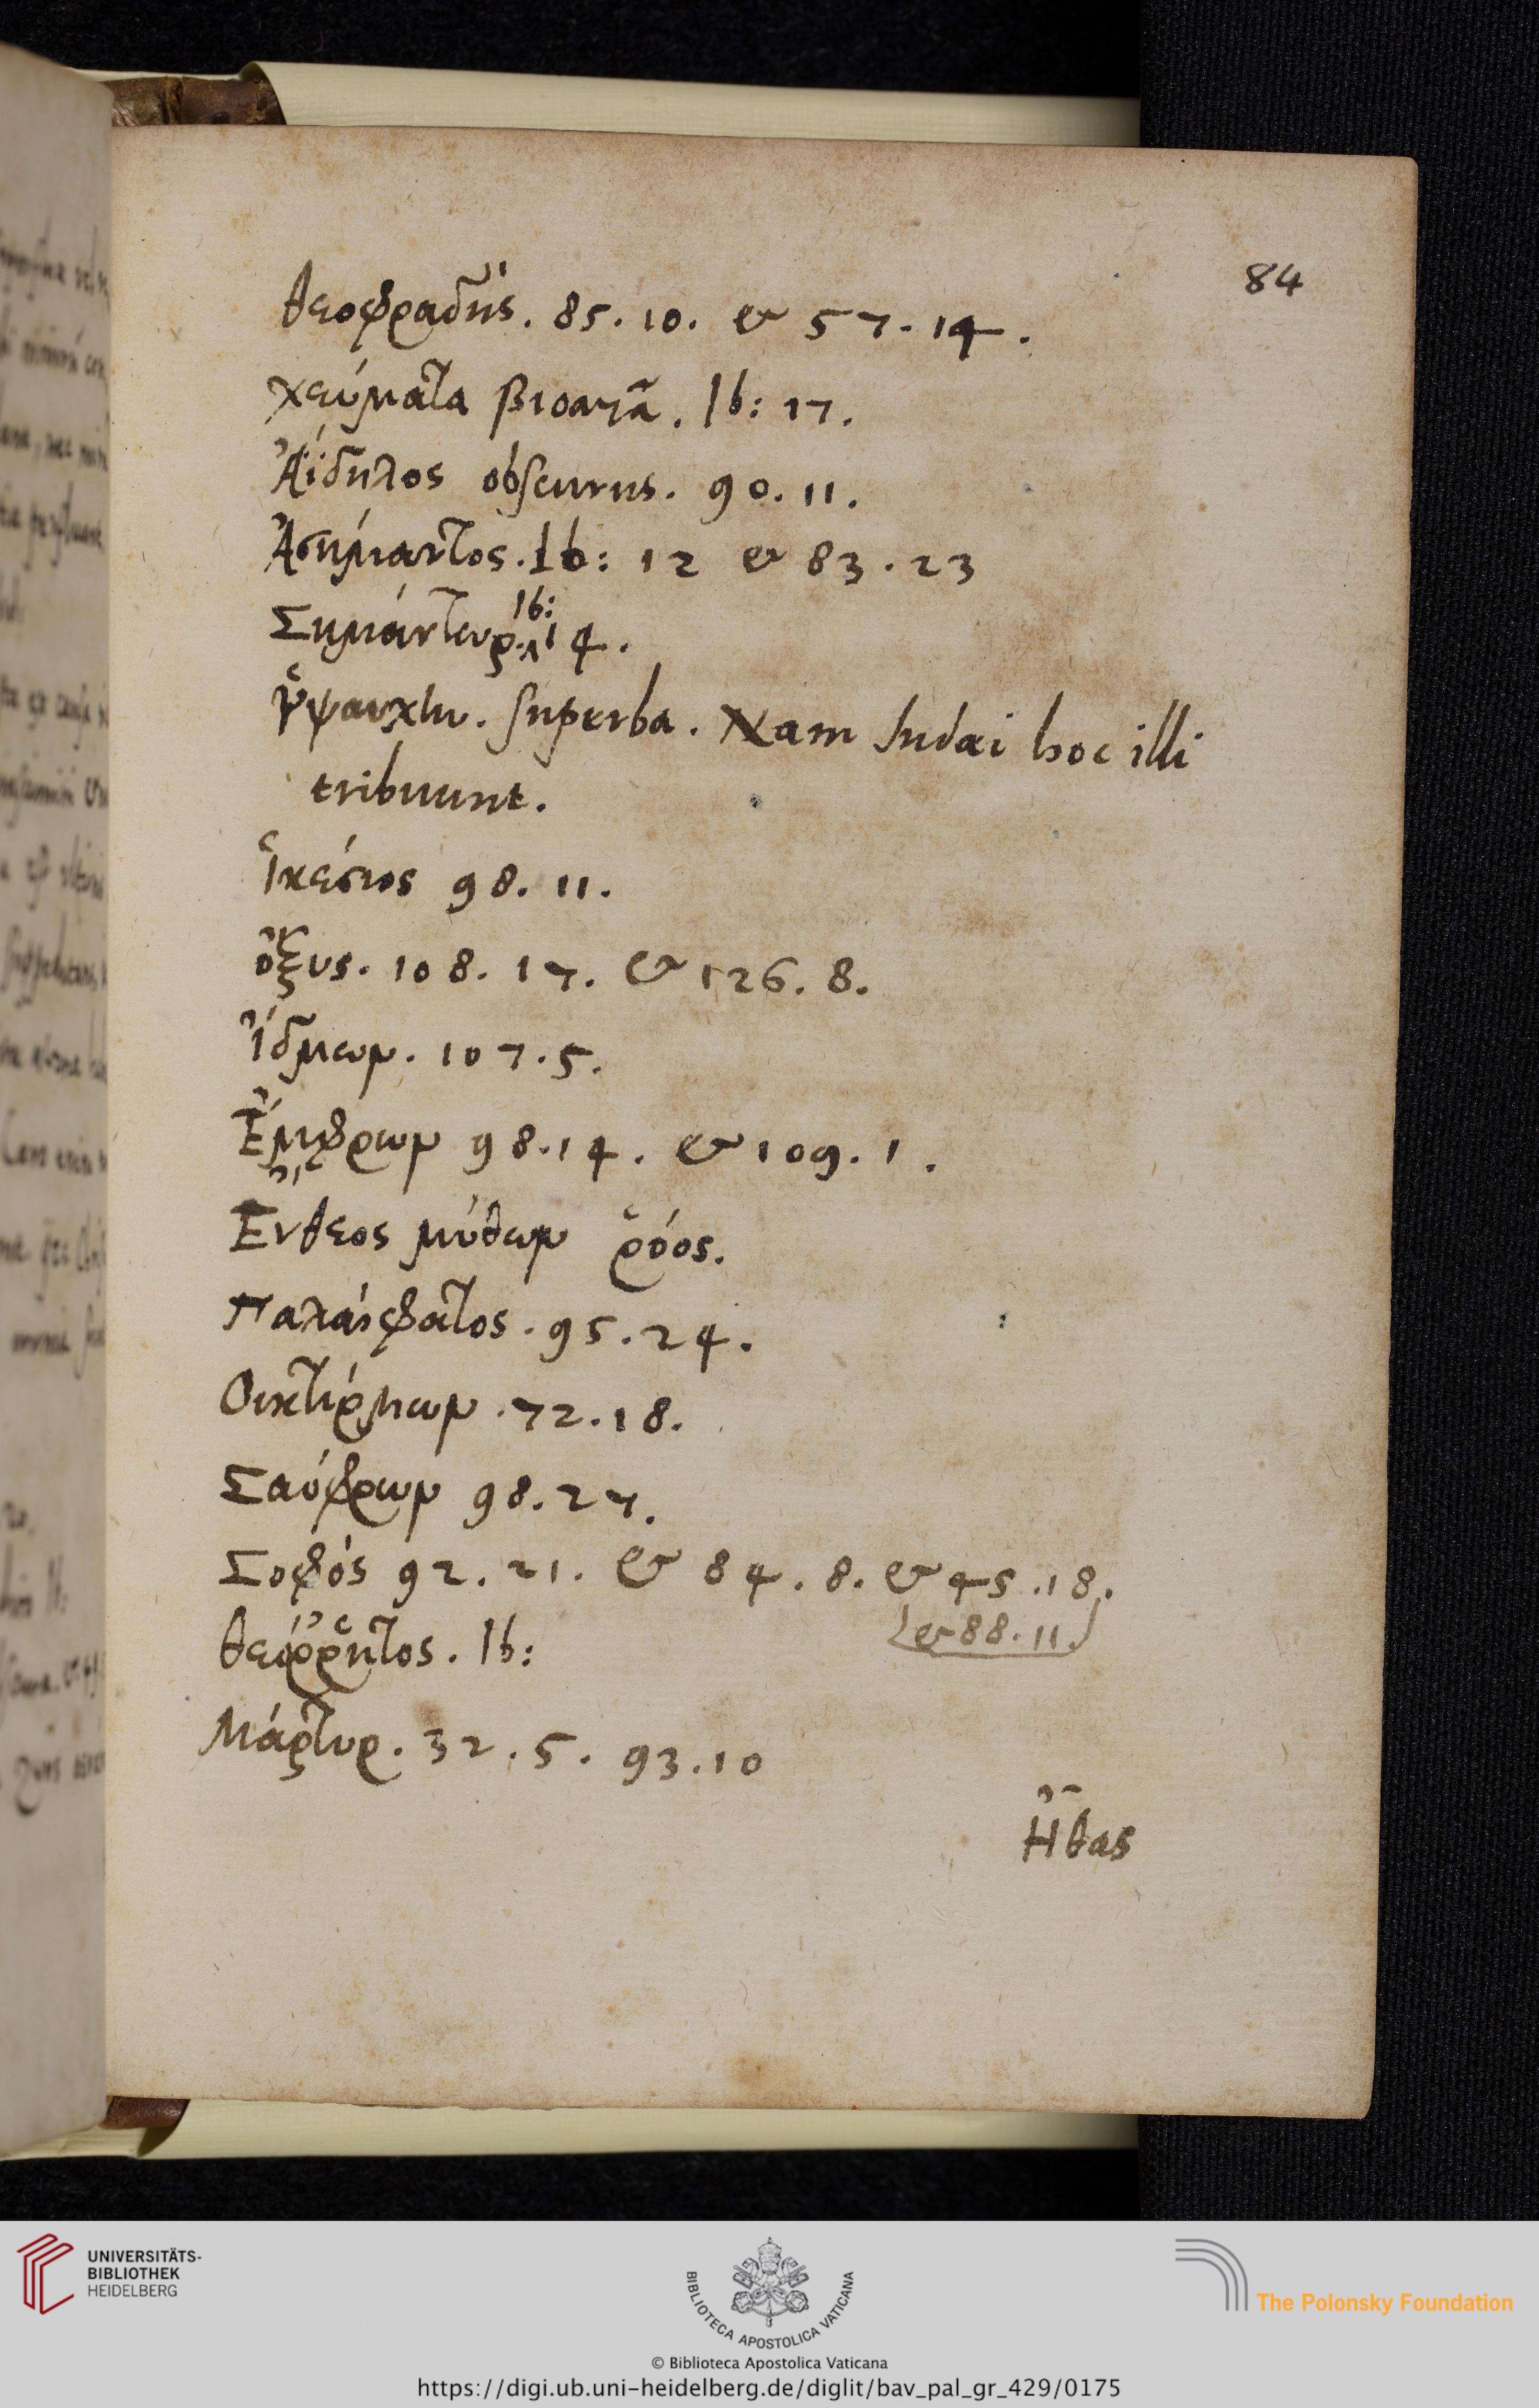 84
θεοφραδὴς. 85. 10. & 57. 14.
χεύματα βιοαγᾶ. Ib: 17.
Ἀΐδηλος obscurus. 90. 11.
Ἀσήμαντος. Ib: 12 & 83. 23
Σημάντωρ. Ib: 14.
Ὑψαυχὴν. superba. Nam Iudæi hoc illi
tribuunt.
Ἱκέσιος 98. 11.
ὄξυς. 108. 17. & 126. 8.
Ἴδμων. 107. 5.
Ἔμφρων 98. 14. & 109. 1.
Ἔνθεος μύθων ῥόος.
Παλαίφατος. 95. 24.
Οικτίρμων. 72. 18.
Σαόφρων 98. 27.
Σοφός 92. 21. & 84. 8. & 45. 18.
& 88. 11.
θεόῤῥητος. Ib:
Μάρτυρ. 32. 5. 93. 10
Ἦθας
UNIVERSITÄTS-
BIBLIOTHEK
HEIDELBERG
BIBLIOTECA APOSTOLICA VATICANA
The Polonsky Foundation
© Biblioteca Apostolica Vaticana
https://digi.ub.uni-heidelberg.de/diglit/bav_pal_gr_429/0175